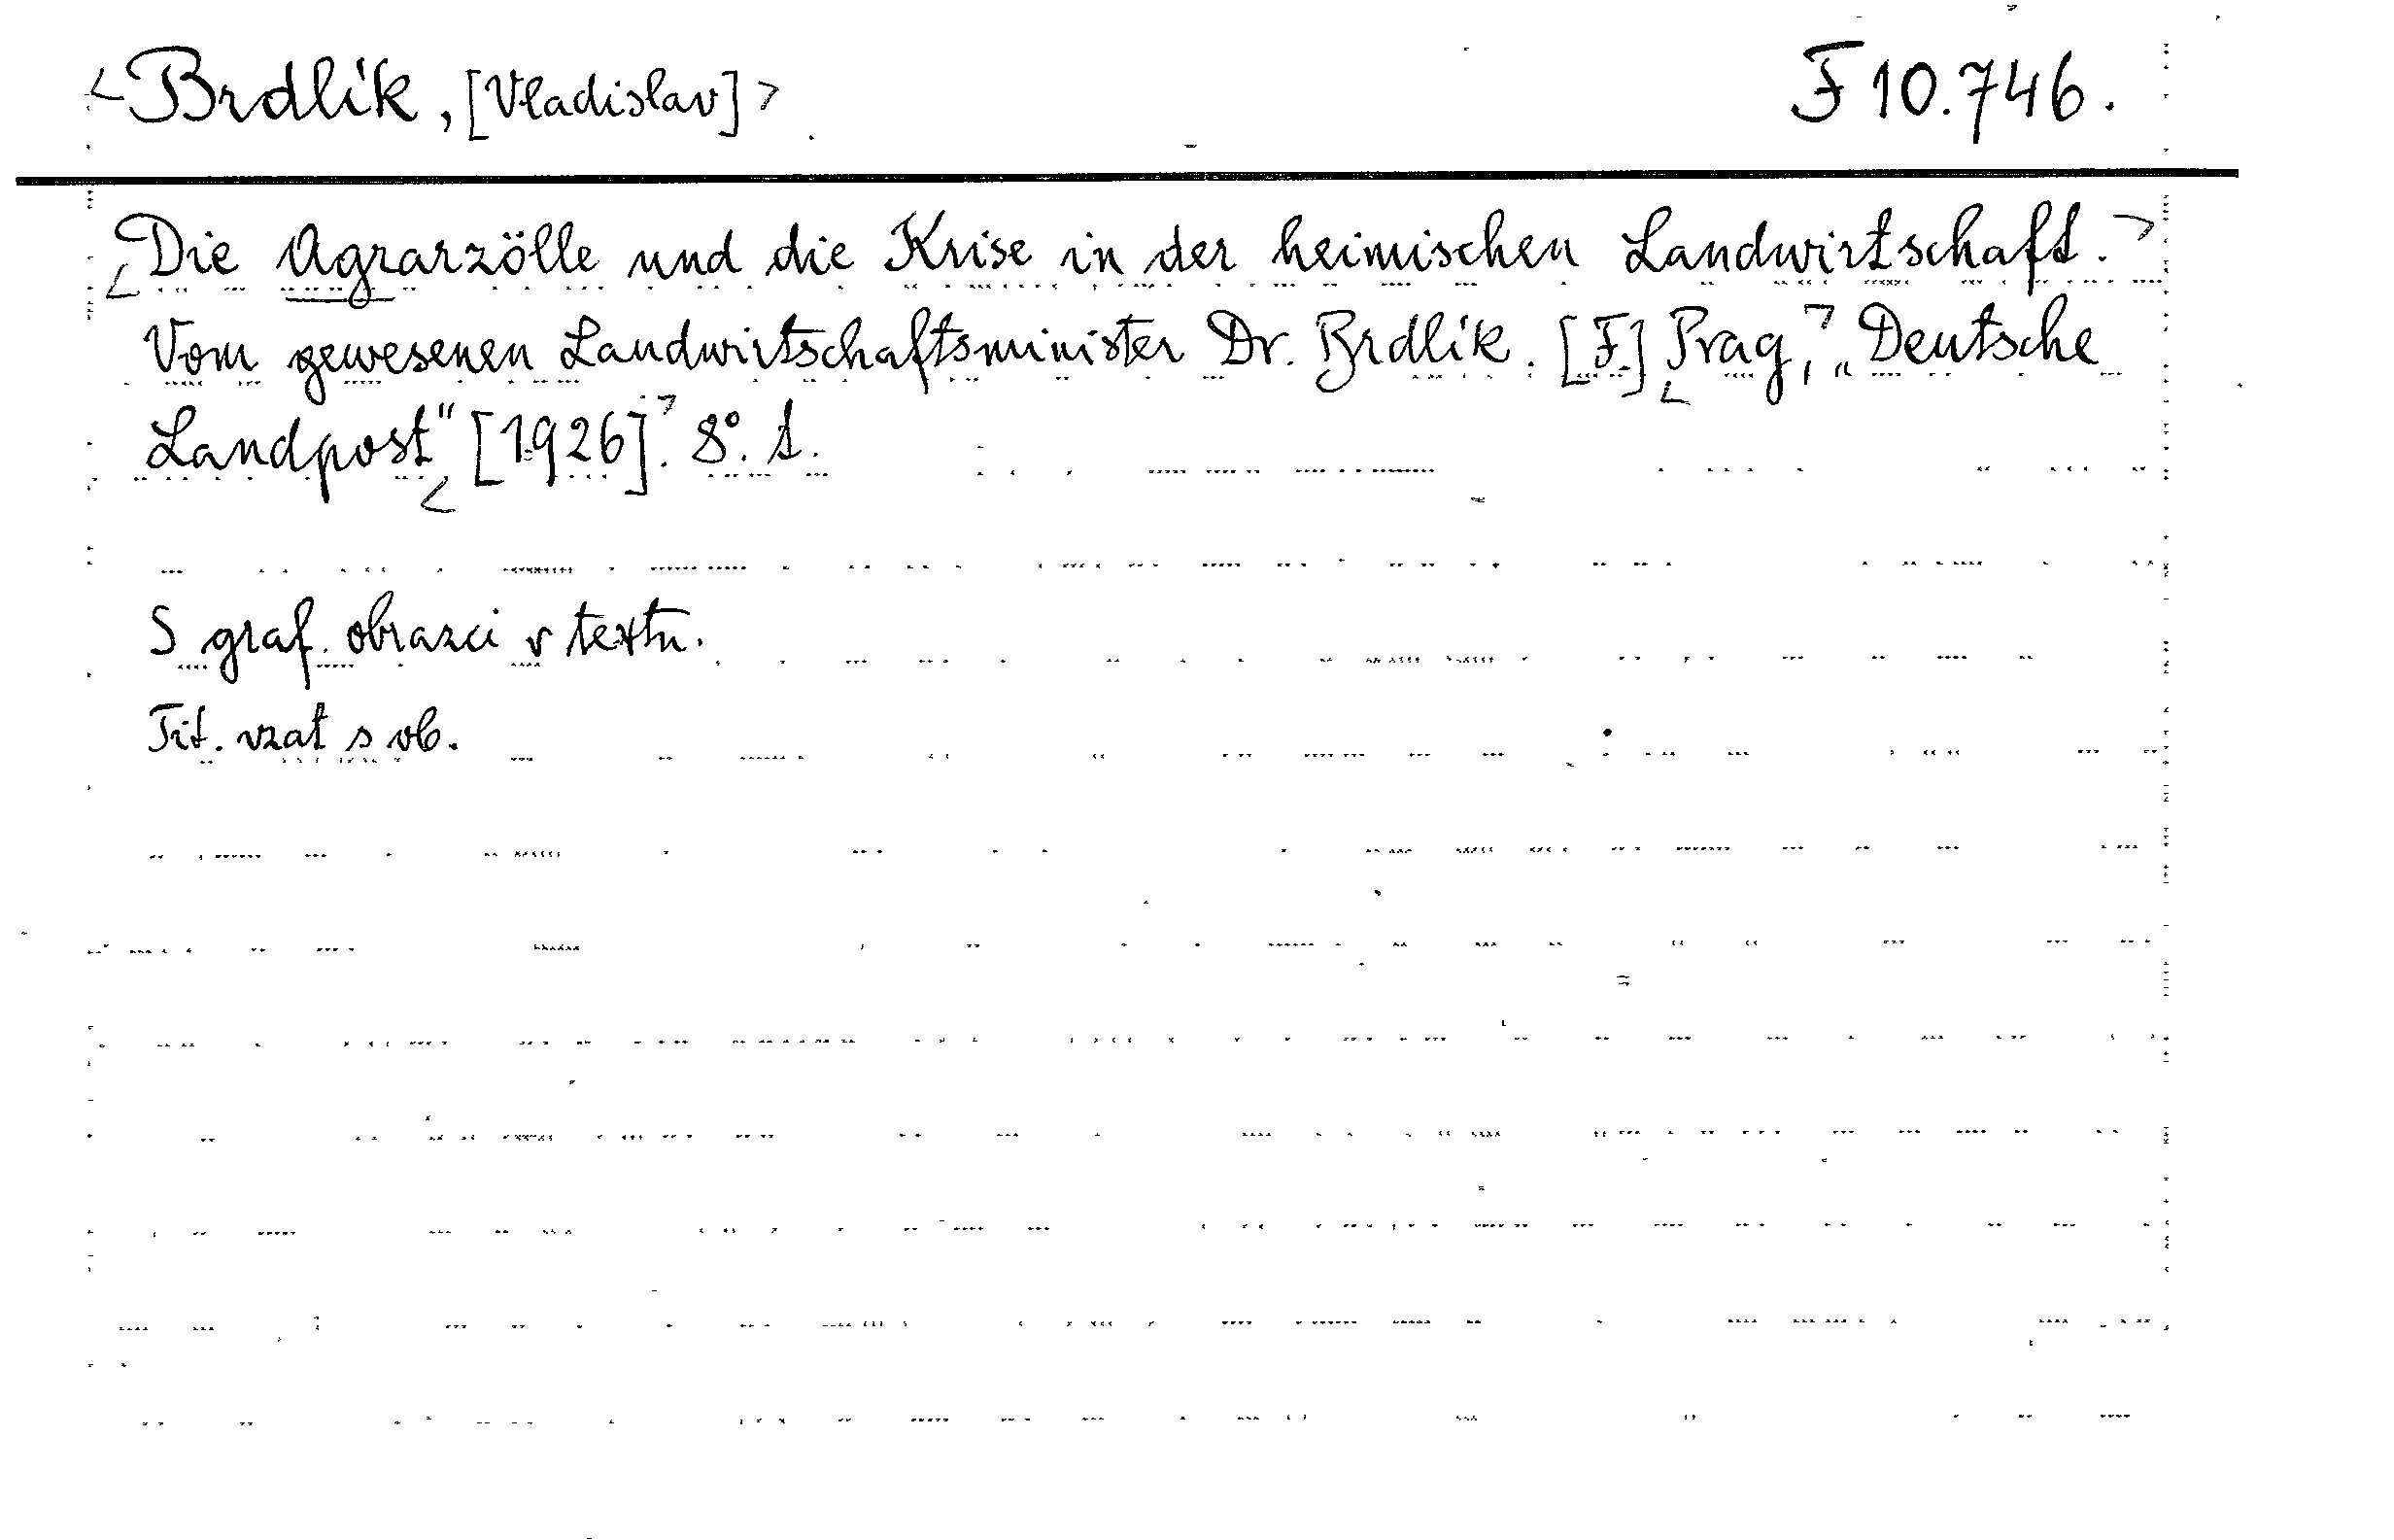 <Brdlík, [Vladislav]> F 10.746.
<Die Agrarzölle und die Krise in der heimischen Landwirtschaft.>
Vom gewesenen Landwirtschaftsminister Dr. Brdlík. [F.] <Prag,> „Deutsche
Landpost" <[1926].> 8°. 1.
S graf. obrazci v textu.
Tit. vzat s ob.